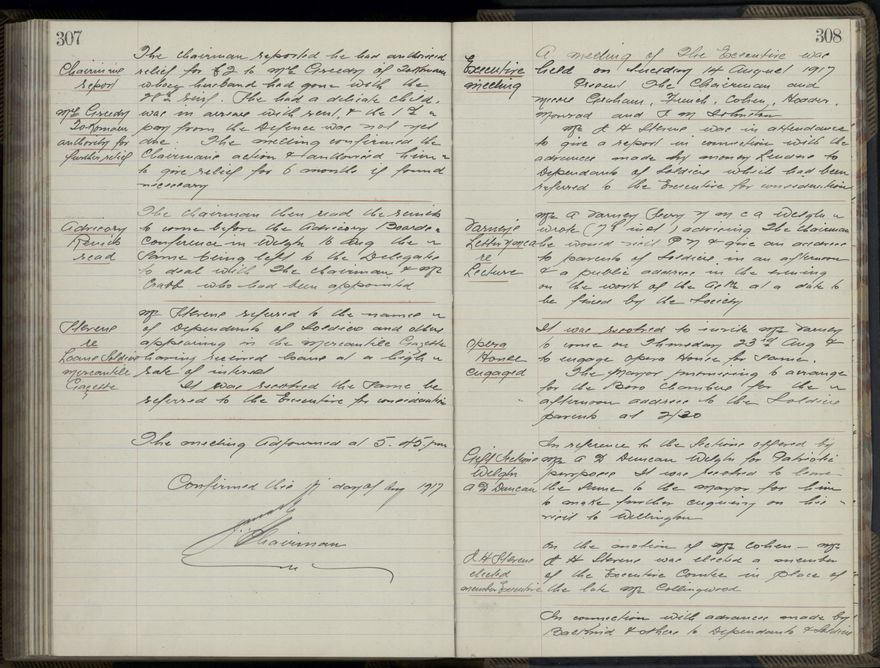 307
The Chairman reported he had authorised
Chairmans
report
relief for £2 to Mrs Greedy of
whose husband had gone with the
Reinf. She had a delicate child,
Mrs Greedy
authority for
further relief
was in arrears with rent, & the 1st
pay from the Defence was not yet
due. The meeting confirmed the
Chairmans action & authorised him
to give relief for 6 months if found
necessary
Advisory
Remits
read
The Chairman then read the remits
to come before the Advisory Boards
Conference in Welgtn Aug the
same being left to the Delegates
to deal with The Chairman & Mr
who had been appointed
Sterene
re
Loans Soldiers
Mercantile
Gazette
Mr Sterene referred to the names
of Dependants of Soldiers and others
appearing in the Mercantile Gazette
having received loans at a high
rate of interest
It was resolved the same be
referred to the Executive for consideration
The meeting adjourned at 5.45 pm
Confirmed this day of Aug 1917
Chairman
308
Executive
meeting
A meeting of The Executive was
held on Tuesday 14 August 1917
Present The Chairman and
Messrs Graham, French, Cohen, Hoader,
Monrad and J M Johnston
Mr J H Sterene was in attendance
to give a report in connection with the
advances made by money Lenders to
Dependants of Soldiers which had been
referred to the Executive for consideration
Varneys
Letter YMCA
re
Lecture
Mr A Varney Secry Y M C A Welgtn
wrote (7th inst) advising The Chairman
he would visit P N & give an address
to parents of Soldiers in an afternoon
& a public address in the evening
on the work of the at a date to
be fixed by the Society
Opera
House
engaged
It was resolved to invite Mr Varney
to come on Thursday 23rd Aug &
to engage Opera House for same.
The Mayor promising to arrange
for the Boro Chambers for the
afternoon address to the Soldiers
parents at 2/30
Gift Sections
Welgtn
A D Duncan
In reference to the Sections offered by
Mr A D Duncan Welgtn for Patriotic
purposes It was resolved to leave
the same to the Mayor for him
to make further enquiry on his
visit to Wellington
J H Sterene
elected
member Executive
On the motion of Mr Cohen — Mr
J H Sterene was elected a member
of the Executive Comtee in place of
the late Mr Collingwood
In connection with advances made by
& others to Dependants & Soldiers